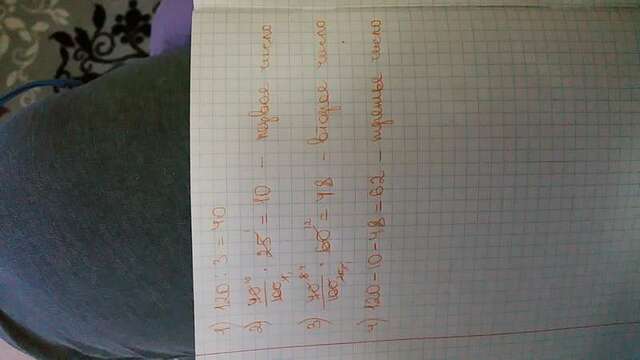 1) 120 : 3 = 40
2) 40/100 · 25 = 10 – первое число
3) 40/100 · 60 = 48 – второе число
4) 120 – 10 – 48 = 62 – третье число